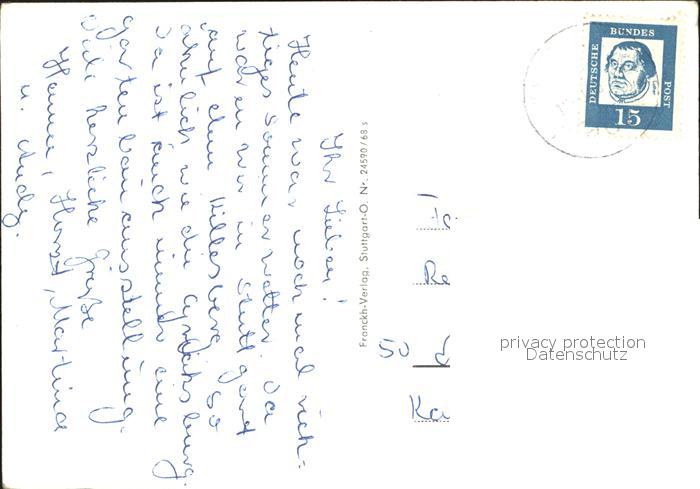 Ihr Lieben!
Heute war noch mal rich-
tiges Sommerwetter. Da
waren wir in Stuttgart
auf dem Killesberg. So
ähnlich wie die
Da ist auch immer eine
gartenbauausstellung.
Viele herzliche Grüße
Hanna, Horst, Martina
u. Andy.
Franckh-Verlag, Stuttgart-O. Nr. 24590/68 s
DEUTSCHE BUNDES POST
15
Re
50
Ka
privacy protection
Datenschutz